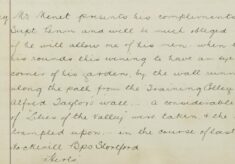 Mr Menet presents his compliments
Supt Penn and will be much obliged
if he will allow one of his men when
his rounds this evening to have an eye
corner of his garden, by the wall running
along the path from the Training College
Alfred Taylor's wall... A considerable
of Lilies of the Valley were taken & the
trampled upon in the course of last
Hockerill Bps Stortford
Herts